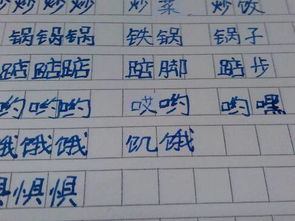 炒 炒 炒菜 炒饭
锅锅锅 铁锅 锅子
踮踮踮 踮脚 踮步
哟哟哟 哎哟 哟嘿
饿饿饿 饥饿
惧惧惧